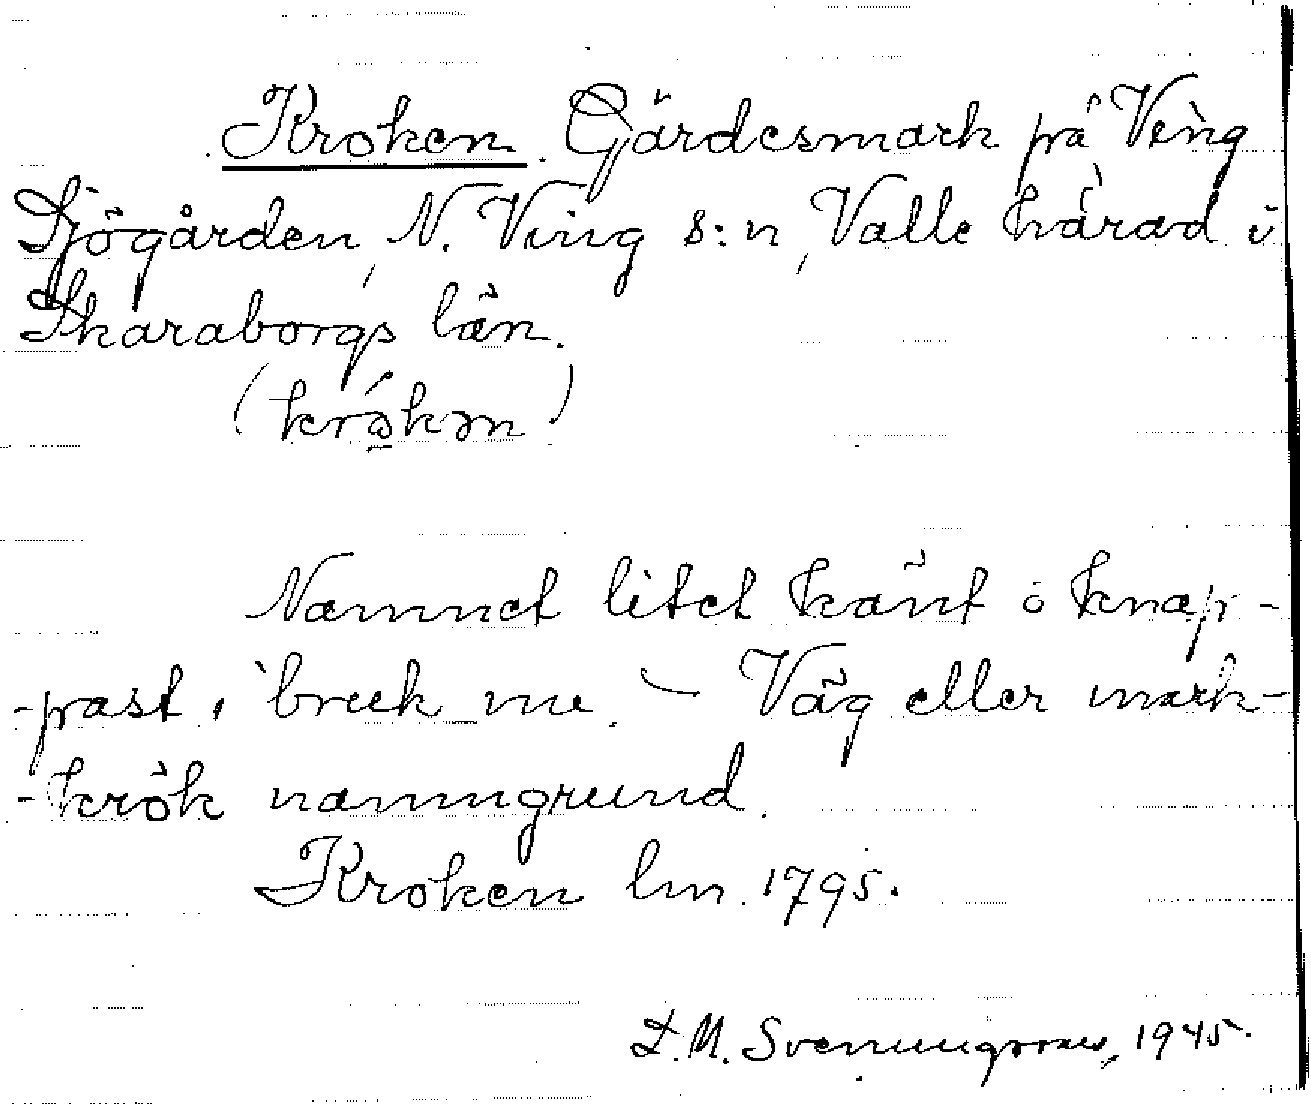 Kroken. Gärdesmark på Ving
Sjögården, N. Ving s:n, Valle härad i
Skaraborgs län.
(krókən)
Namnet litet känt o knap-
-past i bruk nu. – Väg eller mark-
-krök namngrund.
Kroken lm. 1795.
L.M. Svenungsson, 1945.